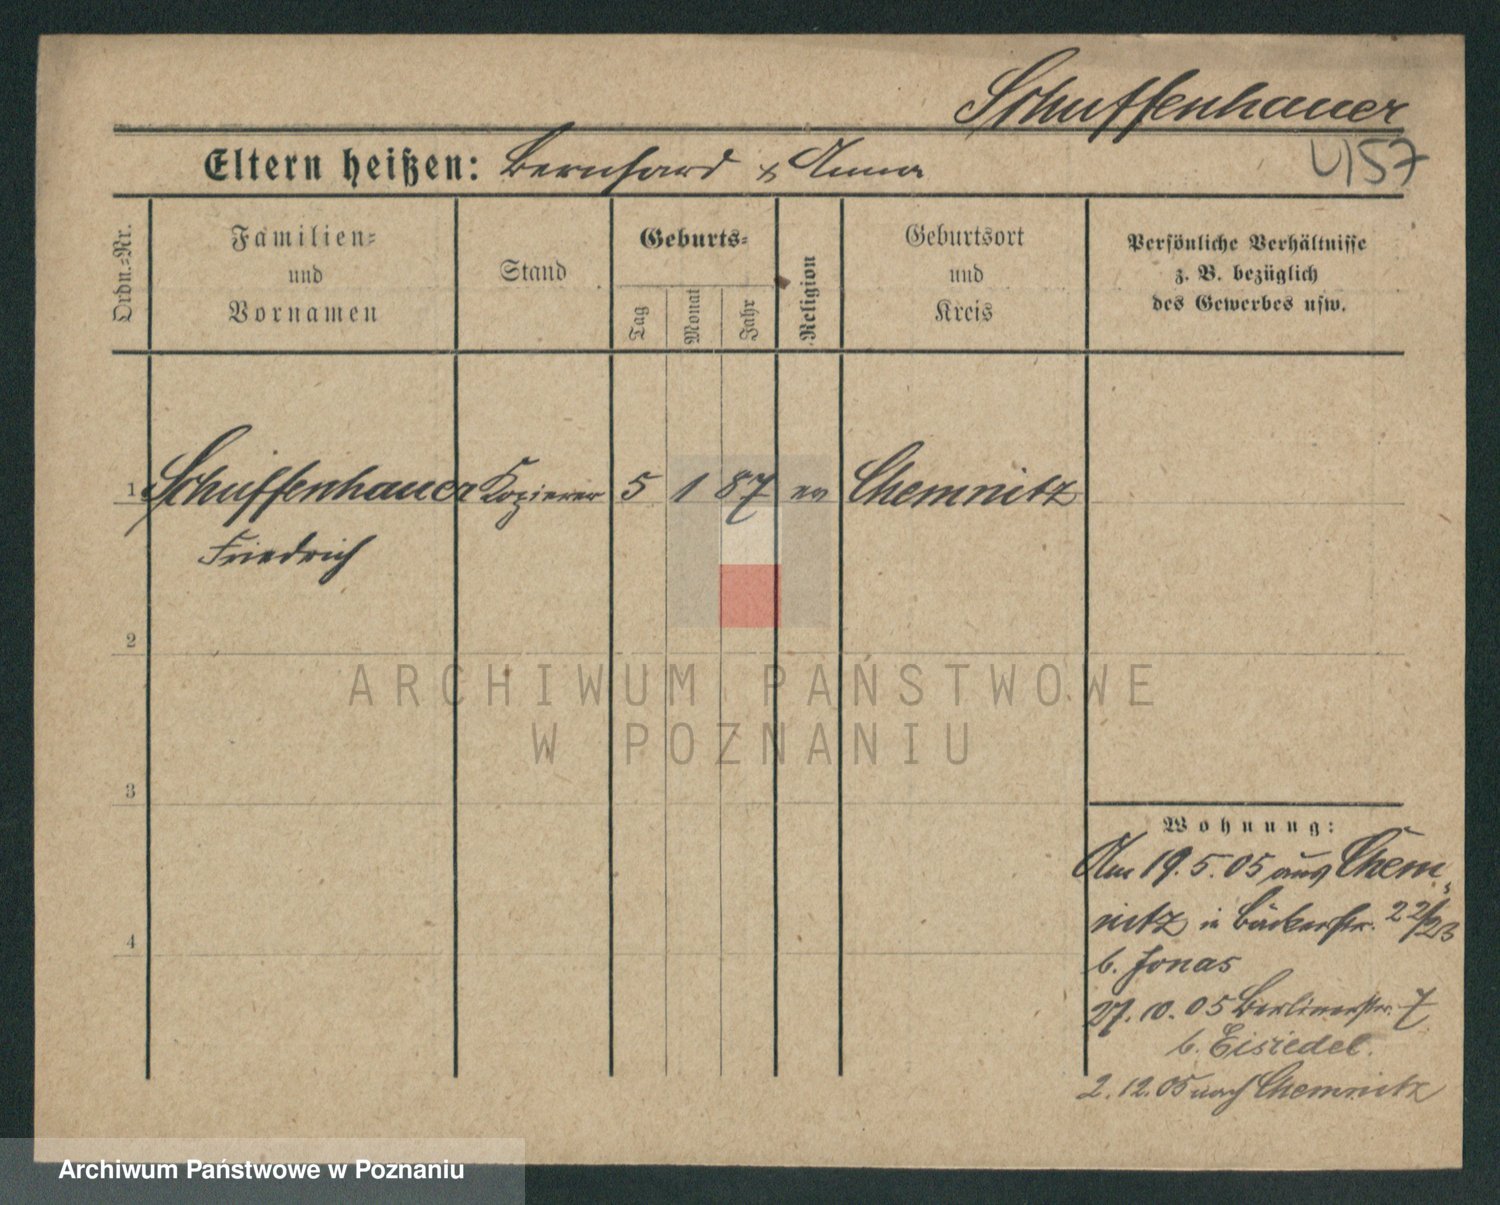 Schuffenhauer
Eltern heißen: Bernhard & Anna
4157
Ordn.=Nr.
Familien=
und
Vornamen
Stand
Geburts=
Tag
Monat
Jahr
Religion
Geburtsort
und
Kreis
Persönliche Verhältnisse
z. B. bezüglich
des Gewerbes usw.
1 Schuffenhauer Kopierer 5 1 87 ev Chemnitz
Friedrich
2
3
4
ARCHIWUM PAŃSTWOWE
W POZNANIU
Wohnung:
Am 19.5.05 aus Chem
nitz in Bäckerstr. 22/23
b. Jonas
27.10.05 Berlinerstr. 7
b. Eisiedel.
2.12.05 nach Chemnitz
Archiwum Państwowe w Poznaniu